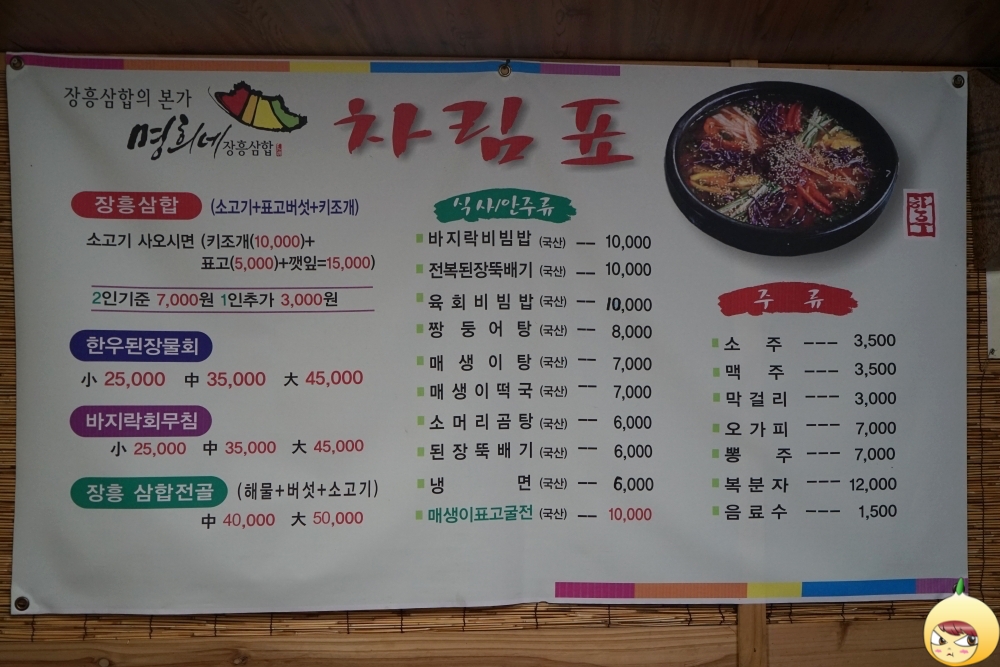 장흥삼합의 본가
명희네 장흥삼합
차림표
장흥삼합 (소고기+표고버섯+키조개)
소고기 사오시면 (키조개(10,000)+
표고(5,000)+깻잎=15,000)
2인기준 7,000원 1인추가 3,000원
한우된장물회
小 25,000 中 35,000 大 45,000
바지락회무침
小 25,000 中 35,000 大 45,000
장흥 삼합전골 (해물+버섯+소고기)
中 40,000 大 50,000
식사/안주류
바지락비빔밥 (국산) -- 10,000
전복된장뚝배기 (국산) -- 10,000
육회비빔밥 (국산) -- 10,000
짱둥어탕 (국산) -- 8,000
매생이탕 (국산) -- 7,000
매생이떡국 (국산) -- 7,000
소머리곰탕 (국산) -- 6,000
된장뚝배기 (국산) -- 6,000
냉면 (국산) -- 6,000
매생이표고굴전 (국산) -- 10,000
주류
소주 --- 3,500
맥주 --- 3,500
막걸리 --- 3,000
오가피 --- 7,000
뽕주 --- 7,000
복분자 --- 12,000
음료수 --- 1,500